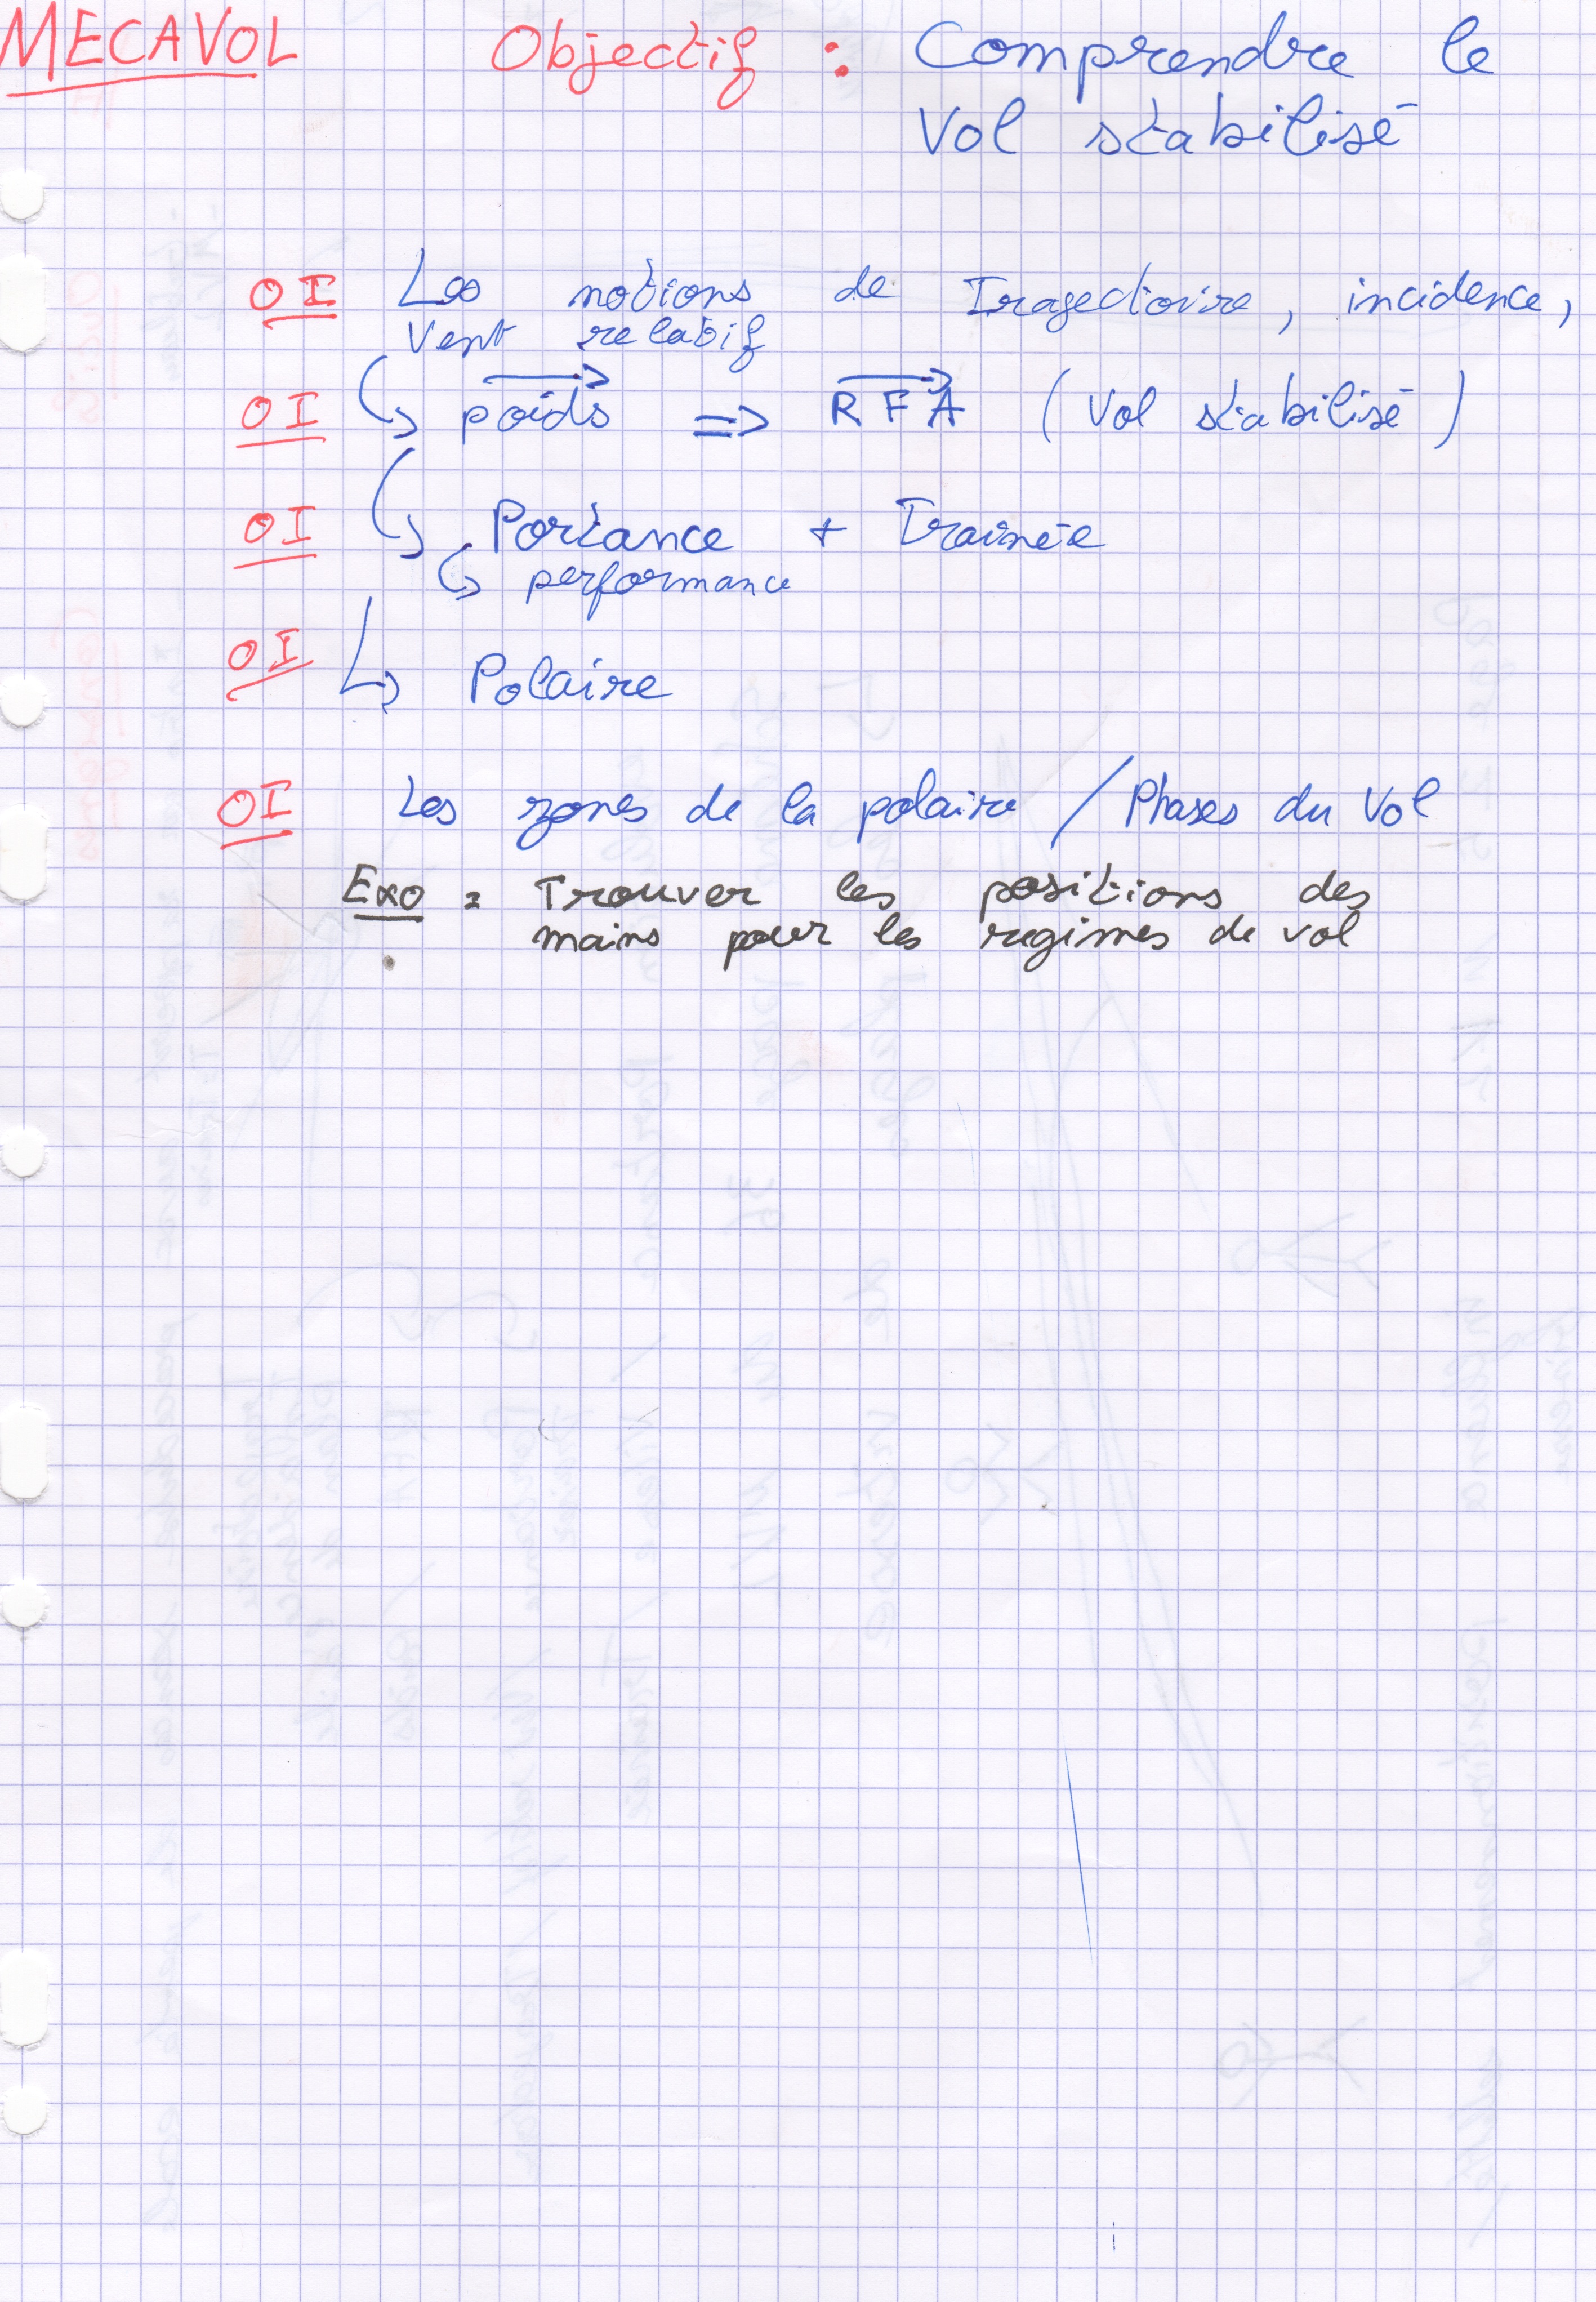 MECAVOL Objectif : Comprendre le
Vol stabilisé
OI Les notions de Trajectoire, incidence,
Vent relatif
OI ↳ poids => RFA (Vol stabilisé)
OI ↳ Portance + Trainée
↳ performance
OI ↳ Polaire
OI Les zones de la polaire / Phases du Vol
Exo : Trouver les positions des
mains pour les regimes de vol